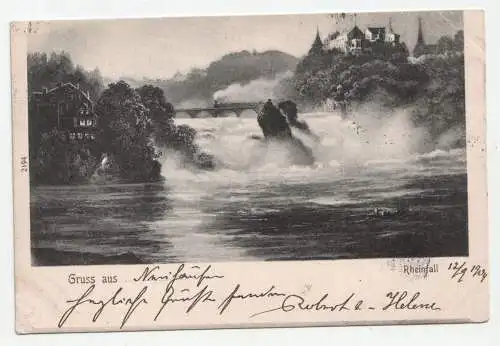 2194
Gruss aus Neuhausen
Rheinfall
12/9 1904
herzliche Grüsse senden Robert & Helene